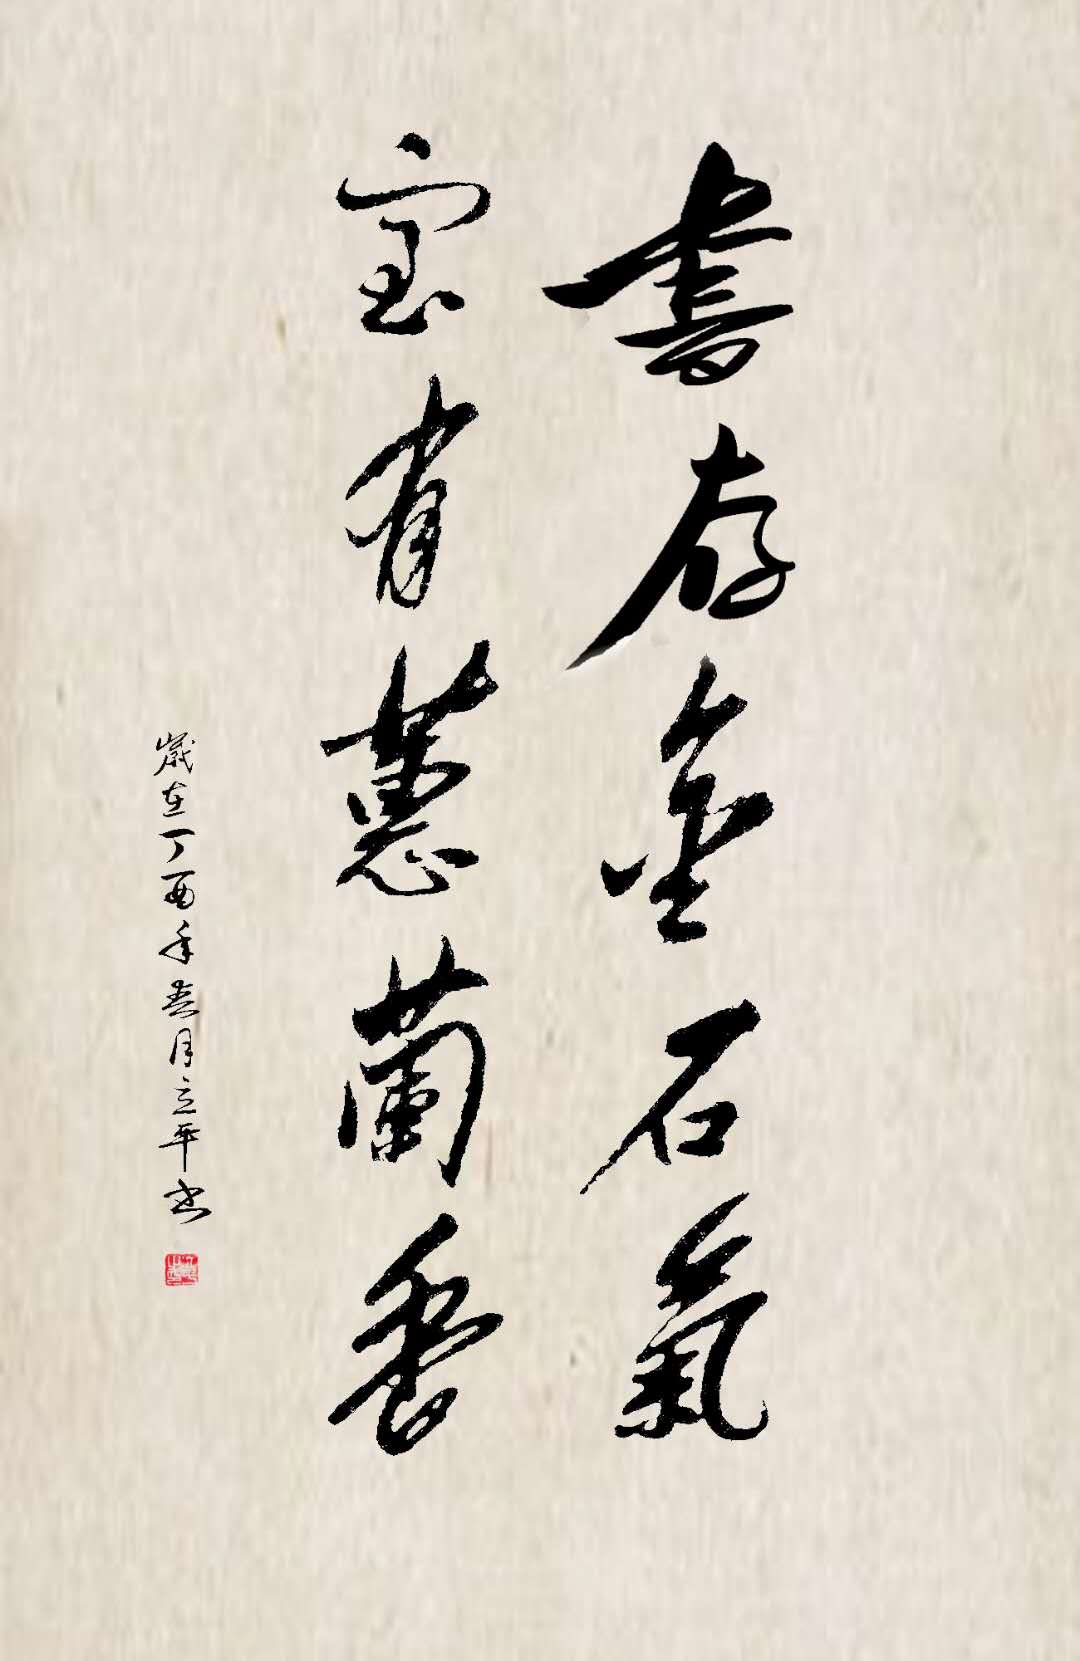 書存金石氣
室有蕙蘭香
歲在丁酉年春月立平书